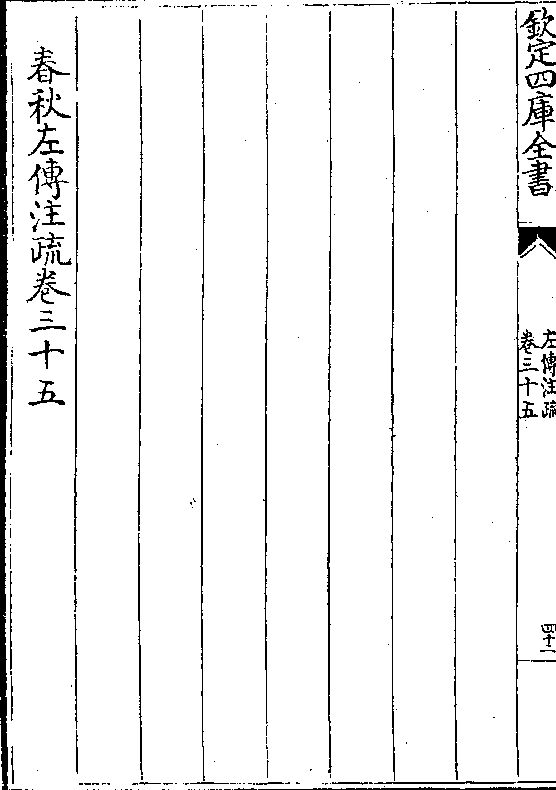 欽定四庫全書
左傳注疏
卷三十五
四十一
春秋左傳注疏卷三十五